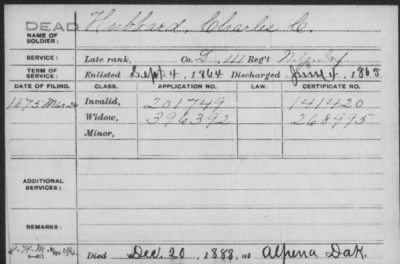 DEAD Hubbard, Charles C.
NAME OF SOLDIER:
SERVICE: Late rank, Co. D, 111 Reg't N.Y. Inf.
TERM OF SERVICE: Enlisted Sept. 4, 1864 Discharged June 4, 1865
DATE OF FILING. CLASS. APPLICATION NO. LAW. CERTIFICATE NO.
1875 Mar 24 Invalid, 201749 141420
Widow, 396392 268995
Minor,
ADDITIONAL SERVICES:
REMARKS:
Died Dec. 20, 1888, at Alpena Dak.